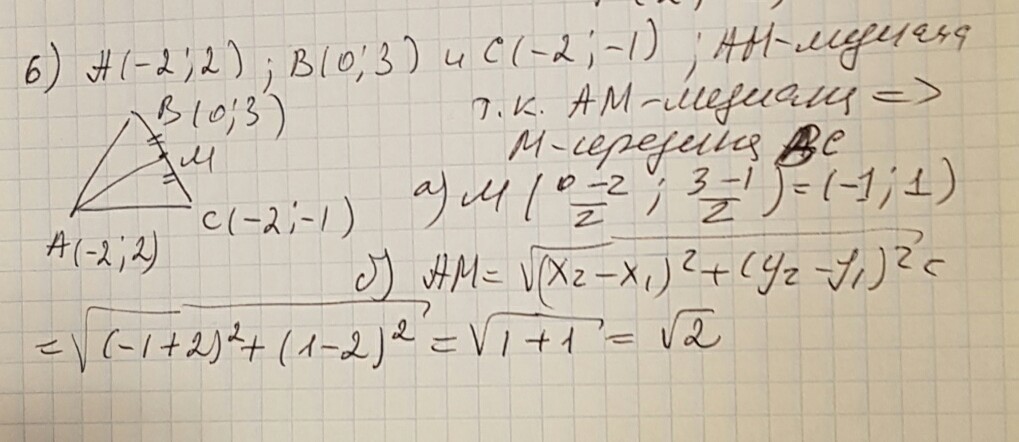 6) A(-2; 2) ; B(0; 3) и C(-2; -1) ; AM-медиана
B(0; 3)
т.к. AM-медиана =>
M
M-середина BC
C(-2; -1)
а) M (0-2/2 ; 3-1/2) = (-1; 1)
A(-2; 2)
б) AM = √(x₂-x₁)² + (y₂-y₁)² =
= √(-1+2)² + (1-2)² = √1+1 = √2